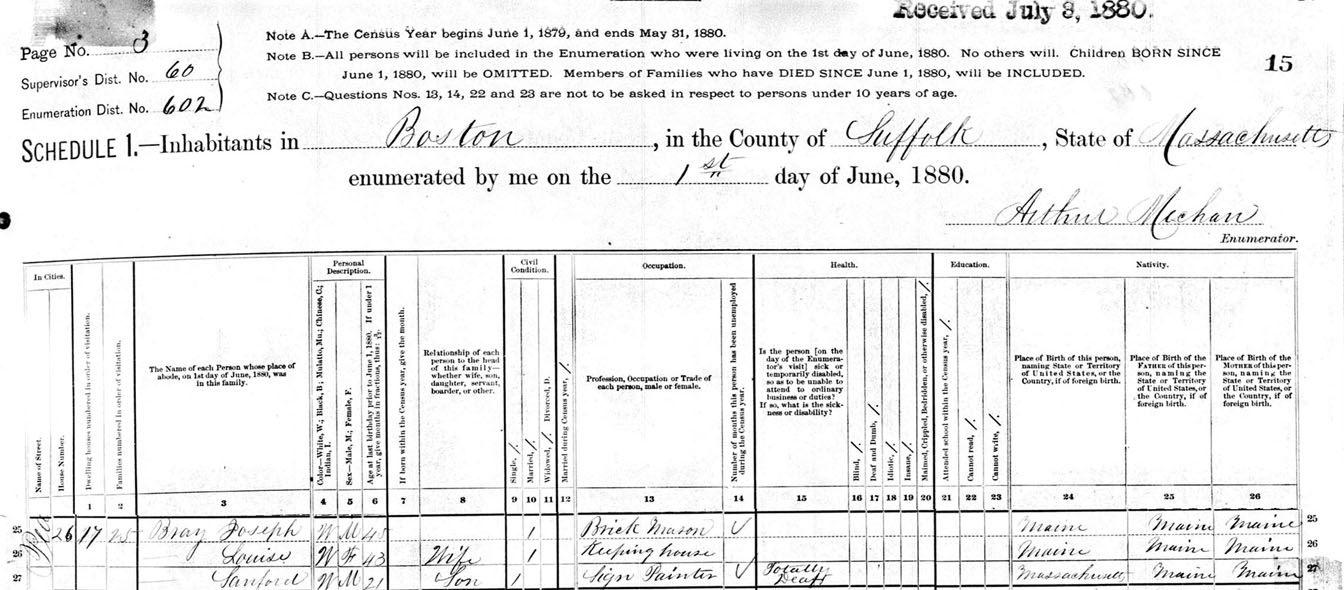 Received July 8, 1880.
Page No. 3
Supervisor's Dist. No. 60
Enumeration Dist. No. 602
Note A.—The Census Year begins June 1, 1879, and ends May 31, 1880.
Note B.—All persons will be included in the Enumeration who were living on the 1st day of June, 1880. No others will. Children BORN SINCE
June 1, 1880, will be OMITTED. Members of Families who have DIED SINCE June 1, 1880, will be INCLUDED.
Note C.—Questions Nos. 13, 14, 22 and 23 are not to be asked in respect to persons under 10 years of age.
15
SCHEDULE 1.—Inhabitants in Boston, in the County of Suffolk, State of Massachusetts
enumerated by me on the 1st day of June, 1880.
Arthur Mechan
Enumerator.
In Cities.
Name of Street.
House Number.
Dwelling houses numbered in order of visitation.
Families numbered in order of visitation.
The Name of each Person whose place of
abode, on 1st day of June, 1880, was
in this family.
Personal
Description.
Color—White, W.; Black, B.; Mulatto, Mu.; Chinese, C.;
Indian, I.
Sex—Male, M.; Female, F.
Age at last birthday prior to June 1, 1880. If under 1
year, give months in fractions, thus:
If born within the Census year, give the month.
Relationship of each
person to the head
of this family—
whether wife, son,
daughter, servant,
boarder, or other.
Civil
Condition.
Single, /.
Married, /.
Widowed, /. Divorced, D.
Married during Census year, /.
Occupation.
Profession, Occupation or Trade of
each person, male or female.
Number of months this person has been unemployed
during the Census year.
Health.
Is the person [on the
day of the Enumera-
tor's visit] sick or
temporarily disabled,
so as to be unable to
attend to ordinary
business or duties?
If so, what is the sick-
ness or disability?
Blind, /.
Deaf and Dumb, /.
Idiotic, /.
Insane, /.
Maimed, Crippled, Bedridden, or otherwise disabled, /.
Education.
Attended school within the Census year, /.
Cannot read, /.
Cannot write, /.
Nativity.
Place of Birth of this person,
naming State or Territory
of United States, or the
Country, if of foreign birth.
Place of Birth of the
FATHER of this per-
son, naming the
State or Territory
of United States, or
the Country, if of
foreign birth.
Place of Birth of the
MOTHER of this per-
son, naming the
State or Territory
of United States, or
the Country, if of
foreign birth.
1 2 3 4 5 6 7 8 9 10 11 12 13 14 15 16 17 18 19 20 21 22 23 24 25 26
25 26 17 25 Bray Joseph W M 45 1 Brick Mason ✓ Maine Maine Maine 25
26 — Louise W F 43 Wife 1 Keeping house Maine Maine Maine 26
27 Sanford W M 21 Son 1 Sign Painter ✓ Totally Deaf Massachusetts Maine Maine 27